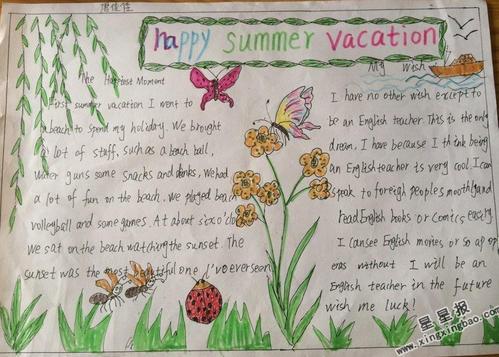 happy summer vacation
The Happiest Moment
First summer vacation I went to
a beach to spend my holiday. We brought
a lot of staff. Such as a beach ball.
Water guns some snacks and drinks. We had
a lot of fun on the beach. we played beach
volleyball and some games. At about six o'clock
we sat on the beach watching the sunset. The
sunset was the most beautiful one I've ever seen
My wish
I have no other wish except to
be an English teacher. This is the only
dream. I have because I think being
an English teacher is very cool. I can
speak to foreign people smoothly and
read English books or comics easily
I can see English movies, or soap op
eras without I will be an
English teacher in the future
wish me luck!
星星报
www.xingxingbao.com